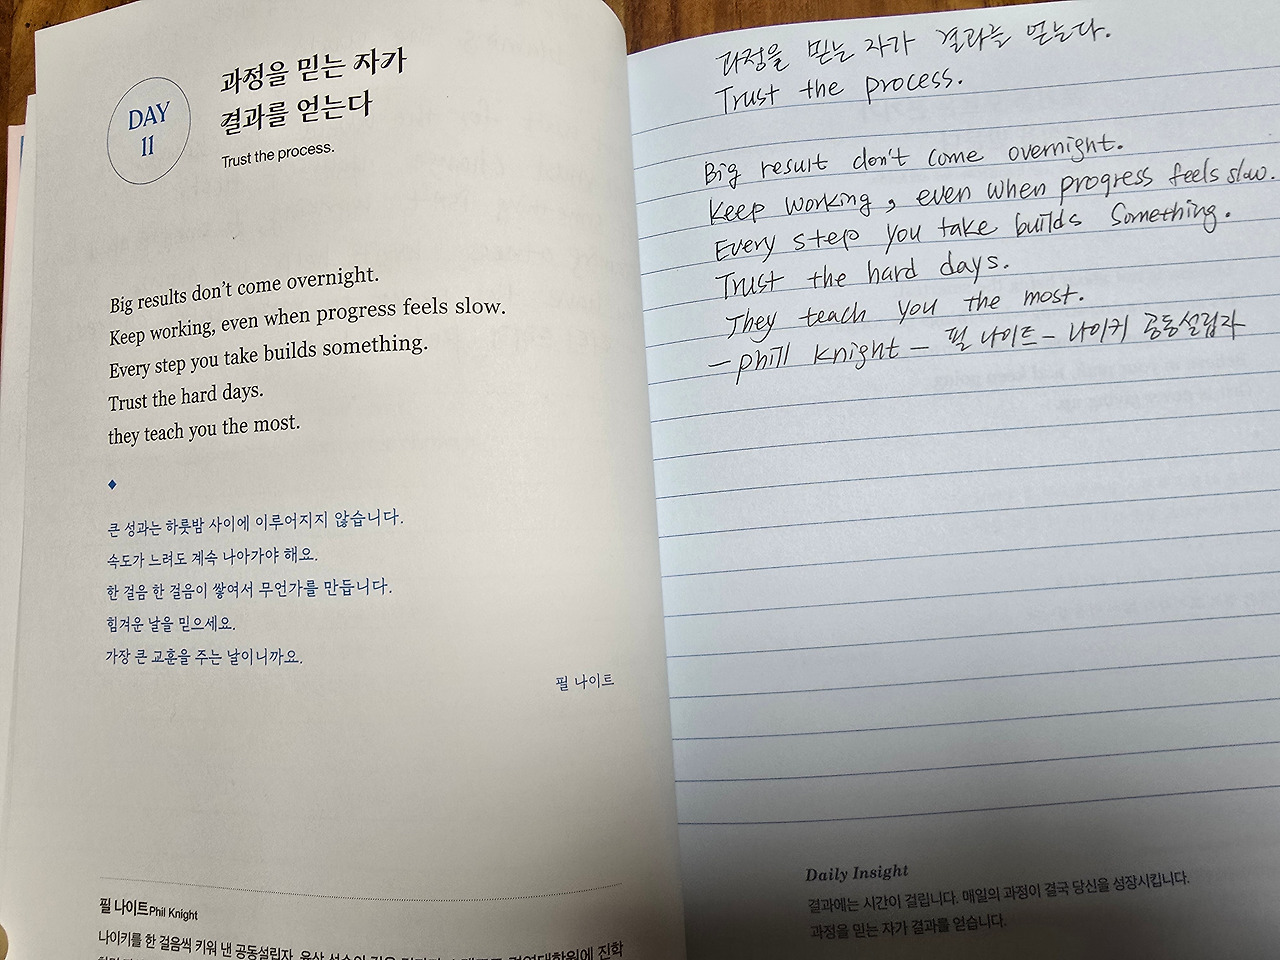 DAY
11
과정을 믿는 자가
결과를 얻는다
Trust the process.
Big results don't come overnight.
Keep working, even when progress feels slow.
Every step you take builds something.
Trust the hard days.
they teach you the most.
큰 성과는 하룻밤 사이에 이루어지지 않습니다.
속도가 느려도 계속 나아가야 해요.
한 걸음 한 걸음이 쌓여서 무언가를 만듭니다.
힘겨운 날을 믿으세요.
가장 큰 교훈을 주는 날이니까요.
필 나이트
필 나이트 Phil Knight
나이키를 한 걸음씩 키워 낸 공동설립자. 육상 선수의
과정을 믿는 자가 결과를 얻는다.
Trust the process.
Big result don't come overnight.
Keep working, even when progress feels slow.
Every step you take builds something.
Trust the hard days.
They teach you the most.
- phill knight - 필 나이트 - 나이키 공동설립자
Daily Insight
결과에는 시간이 걸립니다. 매일의 과정이 결국 당신을 성장시킵니다.
과정을 믿는 자가 결과를 얻습니다.